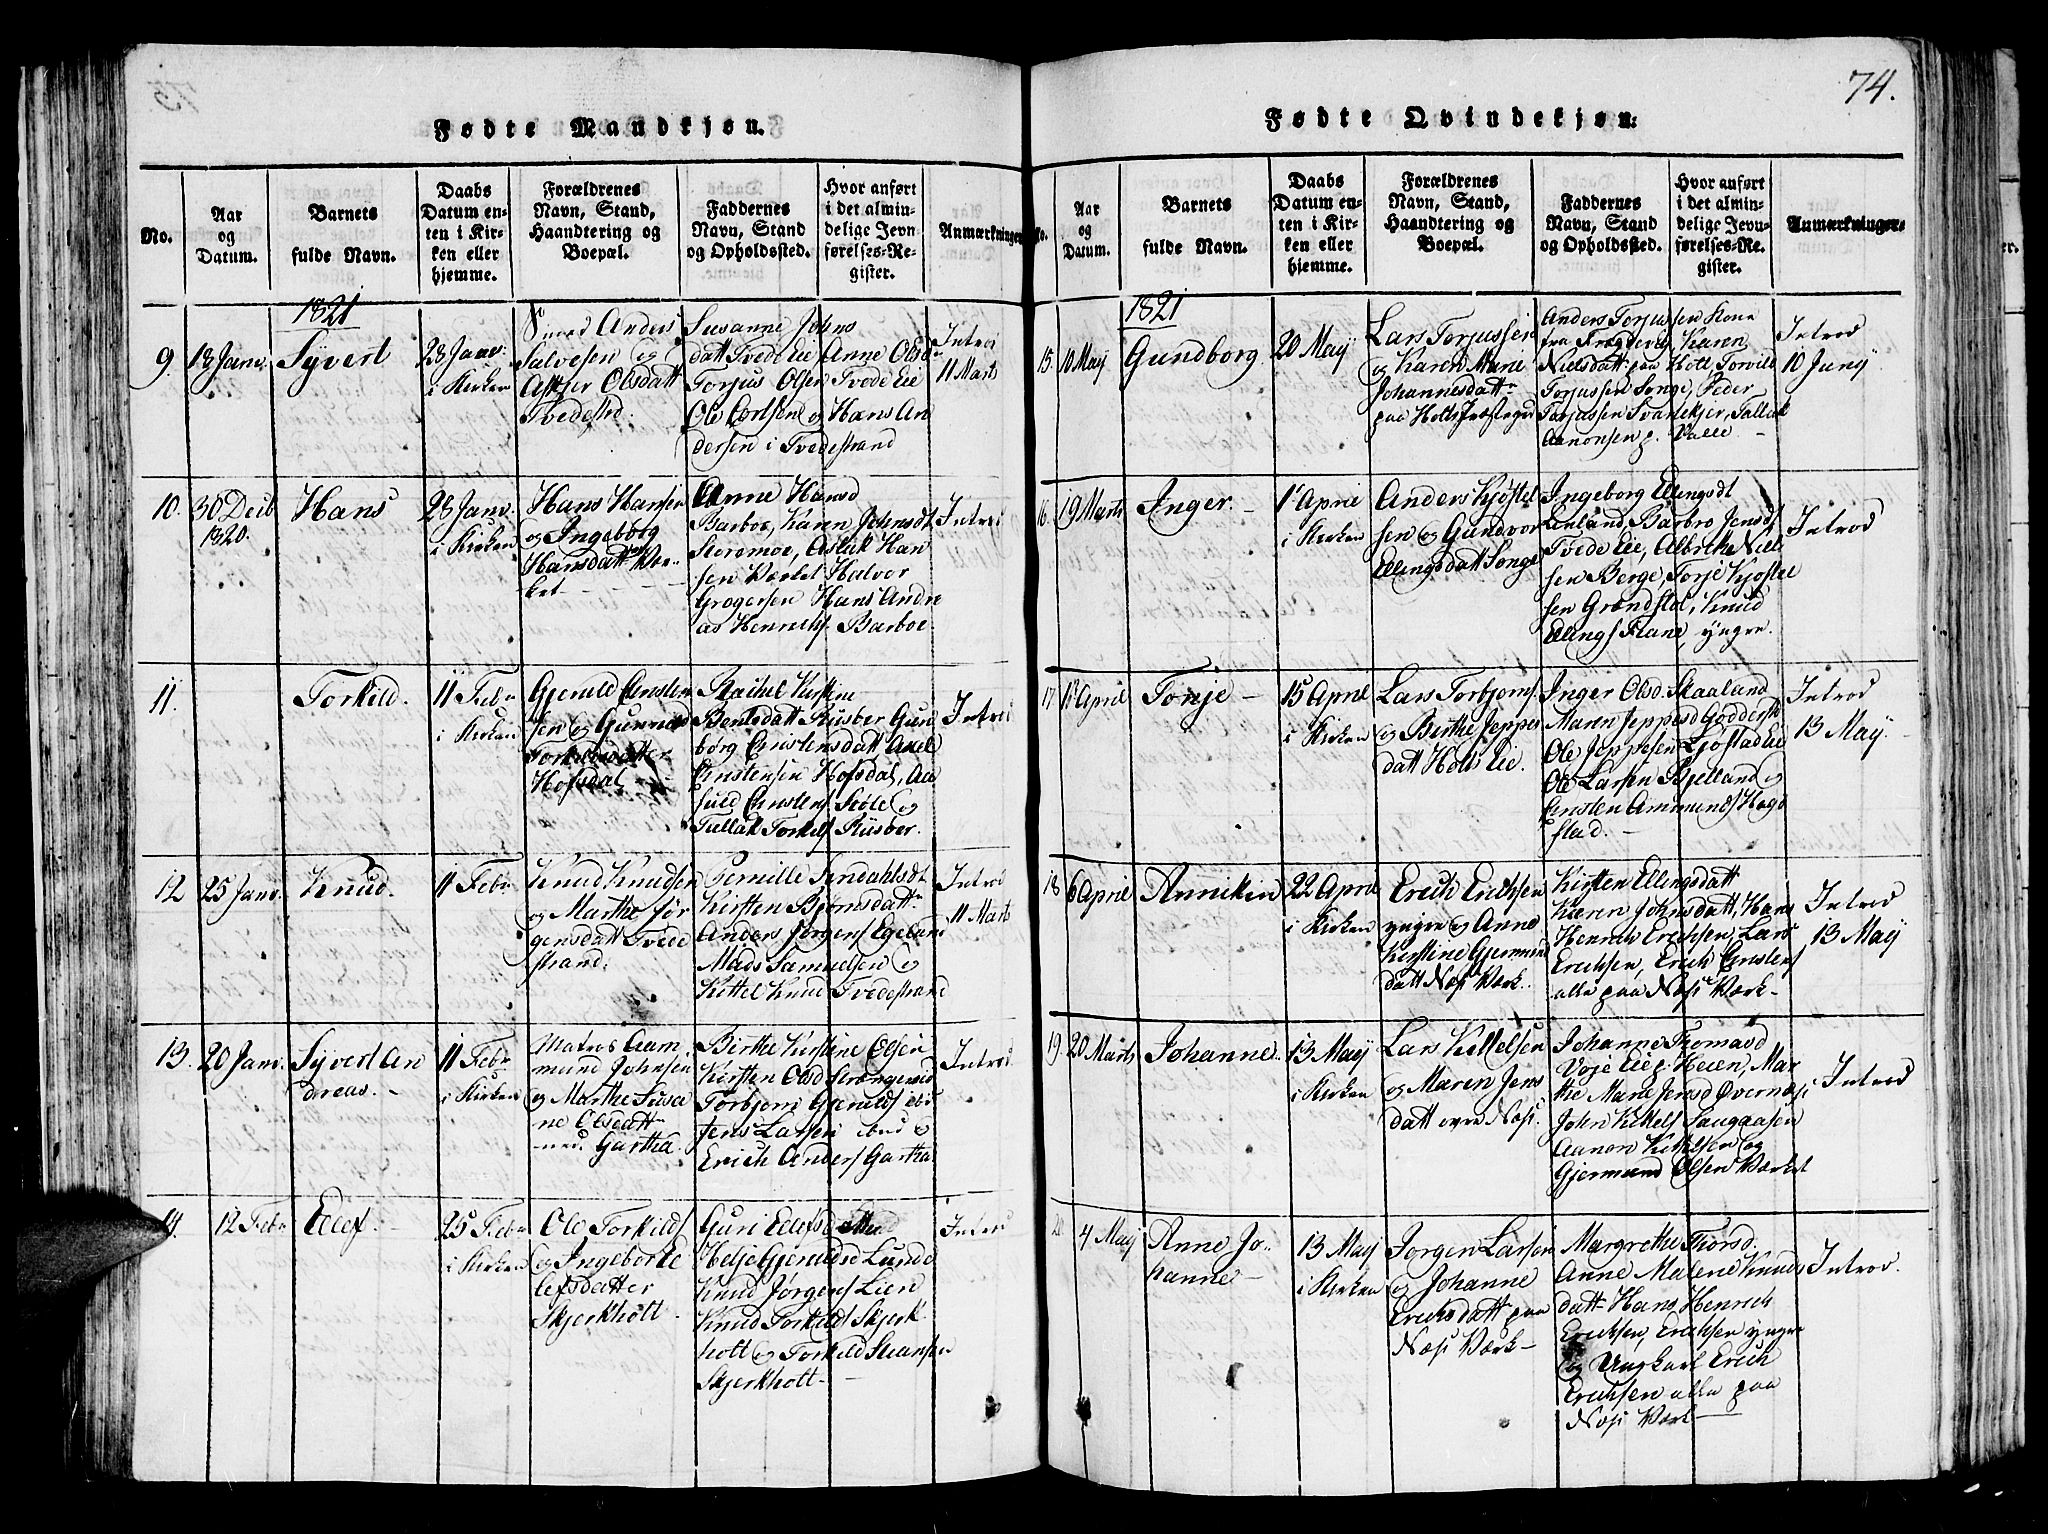 74.
Fødte Mandkjøn.
No.
Aar
og
Datum.
Barnets
fulde Navn.
Daabs
Datum en-
ten i Kir-
ken eller
hjemme.
Forældrenes
Navn, Stand,
Haandtering og
Boepæl.
Faddernes
Navn, Stand
og Opholdssted.
Hvor anført
i det almin-
delige Jevn-
førelses-Re-
gister.
Anmærkninger
1821
9.
18 Janv.
Syvert
28 Janv.
i Kirken
Anders
Salvesen og
Olsdatt
Tvedestrd.
Susanne Johns
datt Tvede Eie Anne Olsd
Torjus Olsen Tvede Eie
Ole Carlsen og Hans An
dersen i Tvedestrand
Introd
11 Marts
10.
30 Decb
1820.
Hans
28 Janv.
i Kirken
Hans Hansen
og Ingeborg
Hansdatt Vær-
ket
Anne Hansd
Barboe, Karen Johnsdt
Storemoe, Aslak Han
sen Værket Halvor
Grogersen Hans Andre
as Henrichs. Barboe
Introd
11.
Torkild.
11 Febr
i Kirken
Gjeruld Christen
sen og Gunnild
Torkildsdatter
Hofsdal
Rachel Kirstine
Bentsdatt Riisber Gun
borg Christensdatt Axel
Christensen Hofsdal, Aa
suld Christens Støle og
Tallak Torkels Riisber.
Introd
12
25 Janv.
Knud.
11 Febr
i Kirken
Knud Knudsen
og Marthe Jør
gensdatt Tvede
strand.
Pernille Sendahlsdt
Kirsten Bjørnsdatt
Anders Jørgens Egeland
Mads Samuelsen og
Kittel Knud Tvedestrand
Introd
11 Marts
13.
20 Janv.
Syvert An
dreas.
11 Febr
i Kirken
Matros Aam
mund Johnsen
og Marthe Susa
ne Olsdatt
Gartha
Birthe Kirstine Olsen
Kirsten Olsd Strengereid
Torbjorn Gjerulds ibid
Jens Larsen ibid og
Erich Anders Gartha
Introd
14.
12 Febr
Ellef.
25 Febr
i Kirken
Ole Torkilds
og Ingebor El
lefsdatter
Skjerkholt
Guri Ellefsd
Helje Gjeruldsd Lunde
Knud Jørgens Lien
Knud Torkilds Skjerk
holt og Torkild Steensen
Skjerkholt
Introd
Fødte Qvindekjøn:
No.
Aar
og
Datum.
Barnets
fulde Navn.
Daabs
Datum en-
ten i Kir-
ken eller
hjemme.
Forældrenes
Navn, Stand,
Haandtering og
Boepæl.
Faddernes
Navn, Stand
og Opholdssted.
Hvor anført
i det almin-
delige Jevn-
førelses-Re-
gister.
Anmærkninger
1821
15.
10 Maij
Gundborg
20 Maij
Lars Torjussen
og Karen Marie
Johannesdatt
paa Holts Præstegd
Anders Torjussen Kone
fra Frogdevig Karen
Nielsdatt paa Holt Torvild
Torjussen Songe, Peder
Torjussen Svartekjer, Tallak
Aanonsen p. Valle
Introd
10 Junij
16.
19 Marts
Inger.
1 April
i Kirken
Anders Kjøstel
sen og Gundvor
Ellingsdatt Songe
Ingeborg Ellingsdt
Lenland, Barbro Jensd
Tvede Eie, Albrethe Niel
sen Berge, Torje Kjøstel
sen Grændstøl, Knud
Ellings Flane, yngre.
Introd
17.
1 April
Tonje
15 April
i Kirken
Lars Torbjorns.
og Birthe Jeppes
datt Holts Eie.
Inger Olsd. Skaaland
Maren Jeppesd Goddersk
Ole Jeppesen Ljøstad Eie
Ole Larsen Bjelland og
Christen Ammunds Hags
stad.
Introd
13 Maij
18
6 April
Anniken
22 April
i Kirken
Erich Erichsen
yngre og Anne
Kirstine Gjermund
datt Næs Værk.
Kirsten Ellingsdatt
Karen Johnsdatt, Hans
Henrich Erichsen, Lars
Erichsen, Erich Christens
alle paa Næs Værk
Introd
13 Maij
19.
20 Marts
Johanne.
13 Maij
i Kirken
Lars Kittelsen
og Maren Jens
datt øvre Næs.
Johanne Thomasd
Voje Eie p. Heien, Mar
the Marie Jensd Overnæs
John Kittels Saugaasen
Aanon Kittelsen og
Gjermund Olsen Værket
Introd
20
4 Maij
Anne Jo-
hanne
13 Maij
i Kirken
Jørgen Larsen
og Johanne
Erichsdatt paa
Næs Værk
Margrethe Thorsd.
Anne Malene Knuds
datt Hans Henrich
Erichsen, Erichsen yngre
og Ungkarl Erich
Erichsen alle paa
Næs Værk
Introd.